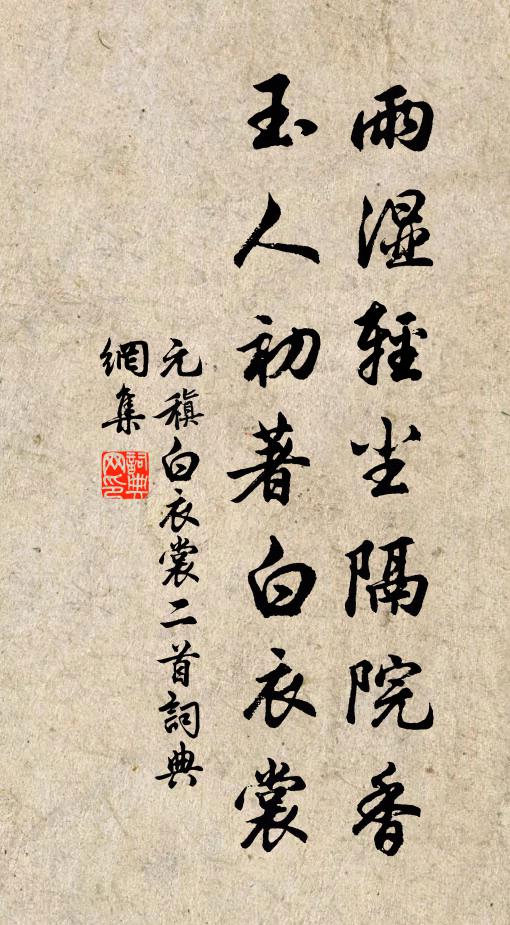 雨湿輕尘隔院香
玉人初著白衣裳
元稹白衣裳二首詞典
網集
詞典网印